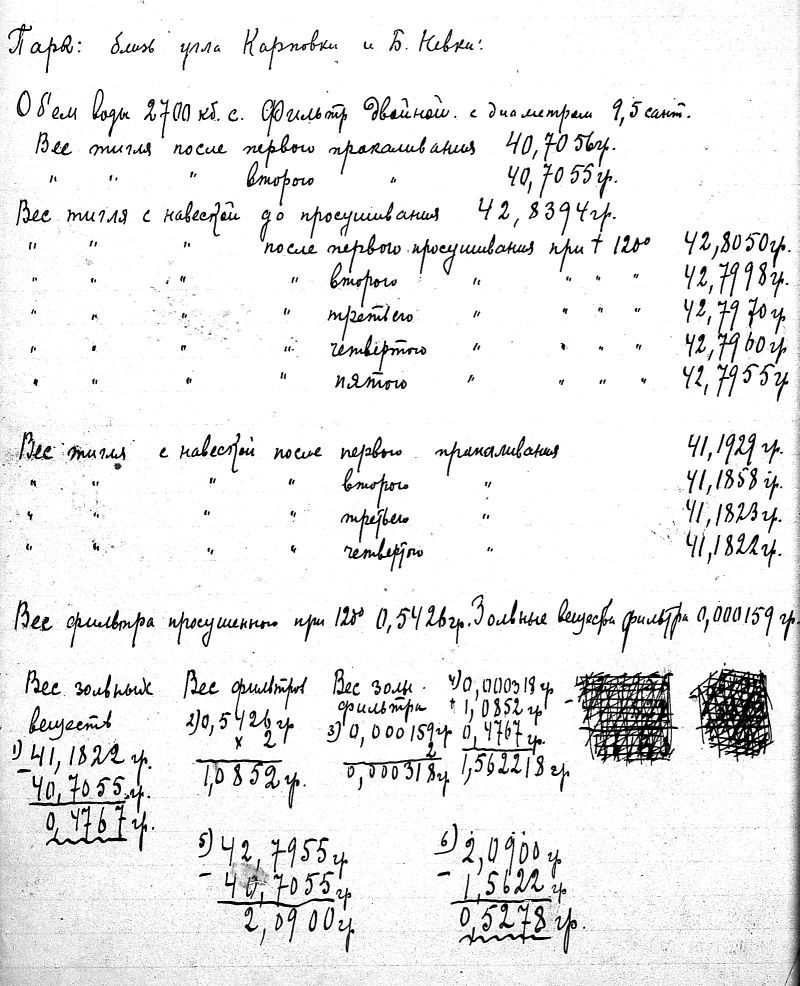 Пара: близь угла Карповки и Б. Невки:
Объем воды 2700 кб. с. Фильтр двойной. с диаметром 9,5 сант.
Вес тигля после первого прокаливания 40,7056 гр.
" " " второго " 40,7055 гр.
Вес тигля с навеской до просушивания 42,8394 гр.
" " " после первого просушивания при t 120° 42,8050 гр.
" " " " второго " " " " 42,7998 гр.
" " " " третьего " " " " 42,7970 гр
" " " " четвертого " " " " 42,7960 гр
" " " " пятого " " " " 42,7955 гр
Вес тигля с навеской после первого прокаливания 41,1929 гр.
" " " " второго " 41,1858 гр.
" " " " третьего " 41,1823 гр.
" " " " четвертого " 41,1822 гр.
Вес фильтра просушенного при 120° 0,5426 гр. Зольные вещества фильтра 0,000159 гр.
Вес зольных
веществ
1) 41,1822 гр.
- 40,7055 гр.
0,4767 гр.
Вес фильтров
2) 0,5426 гр
x 2
1,0852 гр.
Вес золы
фильтра
3) 0,000159 гр
2
0,000318 гр
4) 0,000318 гр
+ 1,0852 гр
0,4767 гр.
1,562218 гр
5) 42,7955 гр
- 40,7055 гр
2,0900 гр
6) 2,0900 гр
- 1,5622 гр
0,5278 гр.